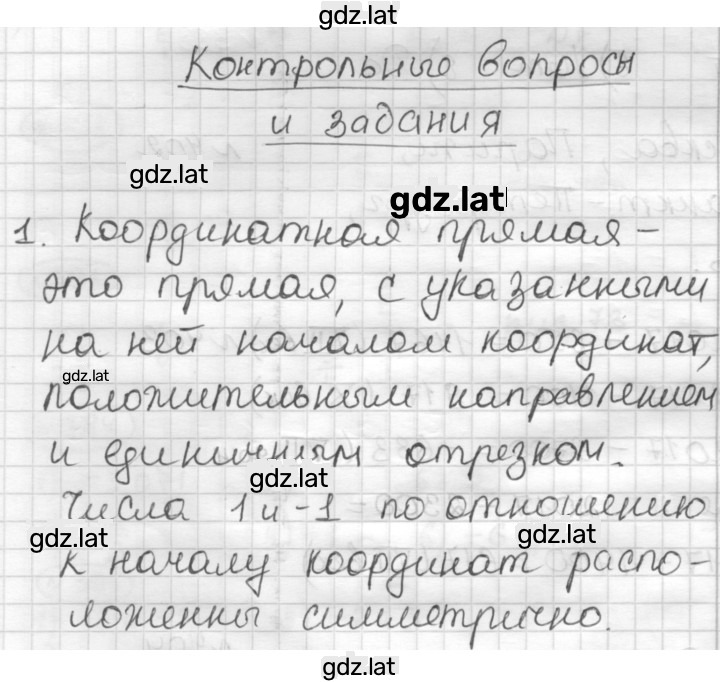 gdz.lat
Контрольные вопросы
и задания
gdz.lat
gdz.lat
1. Координатная прямая –
это прямая, с указанными
на ней началом координат,
gdz.lat
положительным направлением
и единичным отрезком.
gdz.lat
Числа 1 и -1 по отношению
gdz.lat
gdz.lat
к началу координат распо-
ложенны симметрично.
gdz.lat